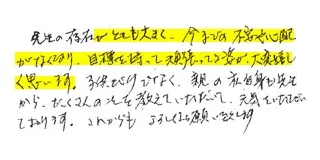 先生の存在がとても大きく、今までの不安や心配
がなくなり、目標を持って頑張ってる姿が、大変嬉し
く思います。子供だけでなく、親の私自身も先生
から、たくさんの事を教えていただいて、元気をいただい
ております。これからもよろしくお願い致します